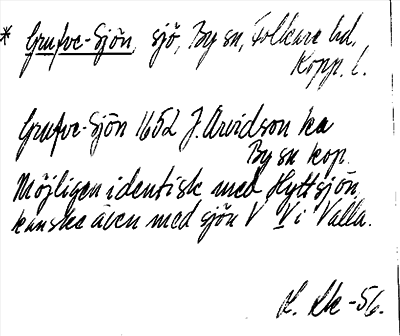 * Grufve-Sjön, sjö, By sn, Folkare hd,
Kopp. l.
Grufve-Sjön 1652 J. Arvidson ka
By sn kop.
Möjligen identisk med Hyttsjön,
kanske även med sjön V V i Valla.
-56.